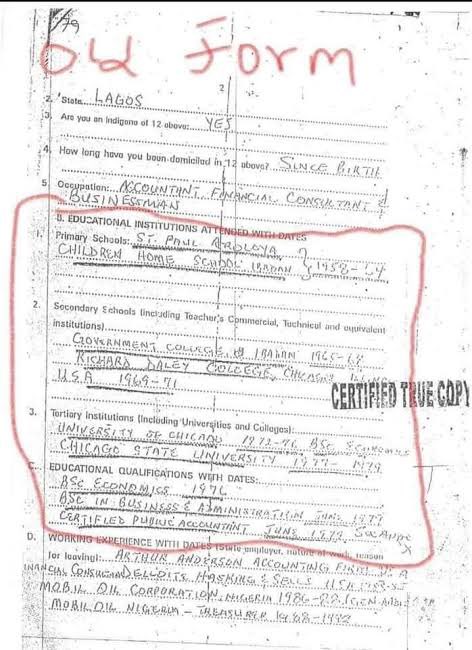 79
Old Form
2
2. State LAGOS
3. Are you an Indigene of 12 above: YES
4. How long have you been domiciled in 12 above? SINCE BIRTH
5. Occupation: ACCOUNTANT FINANCIAL CONSULTANT &
BUSINESSMAN
B. EDUCATIONAL INSTITUTIONS ATTENDED WITH DATES
1. Primary Schools: ST. PAUL AROLOYA
CHILDREN HOME SCHOOL IBADAN } 1958-64
2. Secondary Schools (including Teacher's Commercial, Technical and equivalent
institutions)
GOVERNMENT COLLEGE, IBADAN 1965-68
RICHARD DALEY COLLEGE, CHICAGO
U.S.A 1969-71
CERTIFIED TRUE COPY
3. Tertiary Institutions (Including Universities and Colleges):
UNIVERSITY OF CHICAGO 1972-76 BSC ECONOMICS
CHICAGO STATE UNIVERSITY 1977-1979
C. EDUCATIONAL QUALIFICATIONS WITH DATES:
BSC ECONOMICS 1976
BSC IN BUSINESS & ADMINISTRATION JUNE 1979
CERTIFIED PUBLIC ACCOUNTANT JUNE 1979
D. WORKING EXPERIENCE WITH DATES (State employer, nature of work, reason
for leaving): ARTHUR ANDERSON ACCOUNTING FIRM
DELOITE HASKINS & SELLS USA
MOBIL OIL CORPORATION, NIGERIA
MOBIL OIL NIGERIA - TREASURER 1988-1992